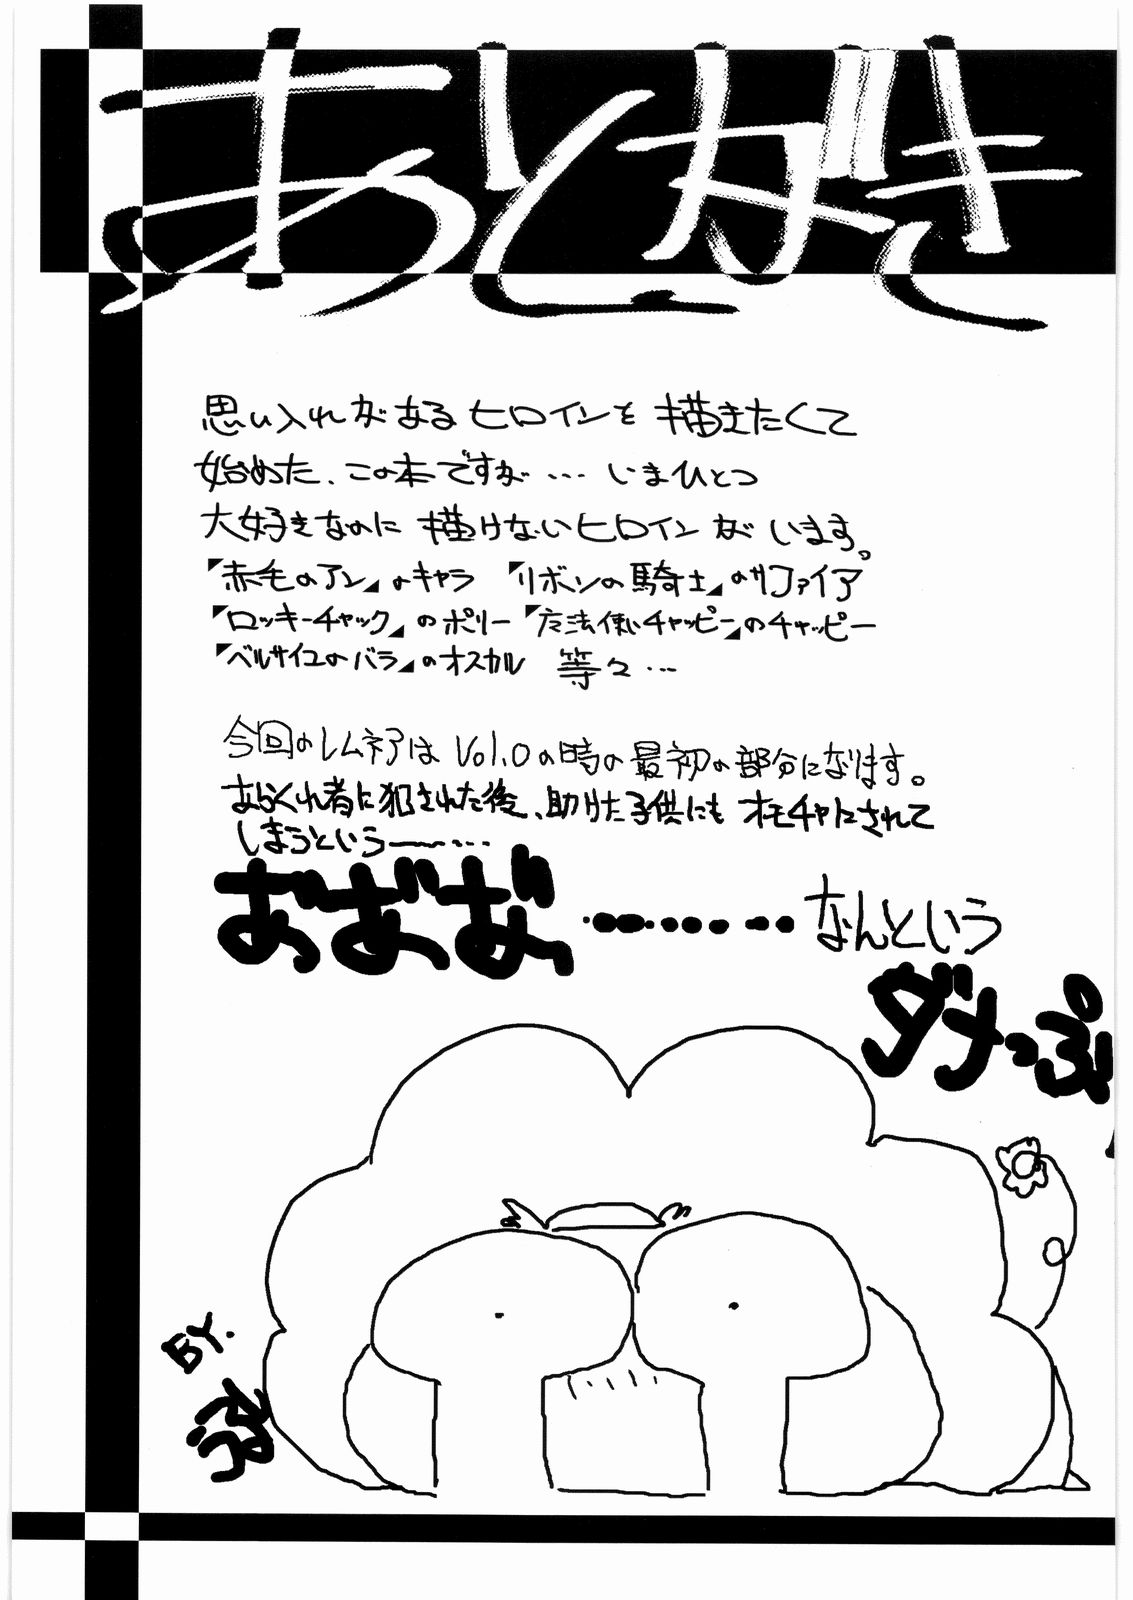 あとがき
思い入れがあるヒロインを描きたくて
始めた、この本ですが…いまひとつ
大好きなのに描けないヒロインがいます。
『赤毛のアン』のキャラ 『リボンの騎士』のサファイア
『ロッキーチャック』のポリー 『魔法使いチャッピー』のチャッピー
『ベルサイユのバラ』のオスカル 等々…
今回のレムネアはVol.0の時の最初の部分になります。
あらくれ者に犯された後、助けた子供にもオモチャにされて
しまうという――…
おばば………なんという
ダメっぷり
BY.